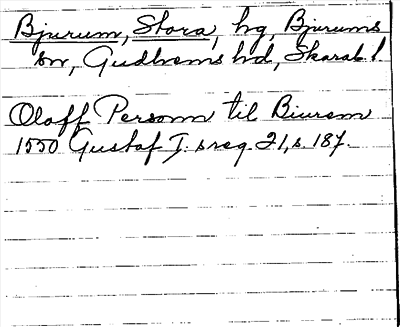 Bjurum, Stora, hg, Bjurums
sn, Gudhems hd, Skarab. l.
Olaff Personn til Biurem
1550 Gustaf I. s reg. 21, s. 187.